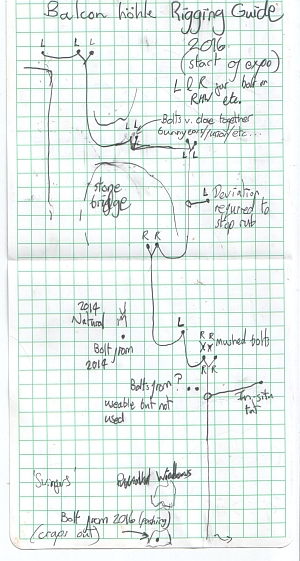 Balcon höhle Rigging Guide
2016
(start of expo)
L & R for bolt on
RHW etc.
L L L
L L
Bolts v. close together
bunny ears/
etc....
L L
stone
bridge
L Deviation
required to
stop rub
R R
2014
Natural
Bolt from
2014
L
R R Mushed bolts
X X
R R
Bolts from ?
useable but not
used
In-situ
tat
'Swingers'
Windows
Bolt from 2016 (pushing)
(craps out)